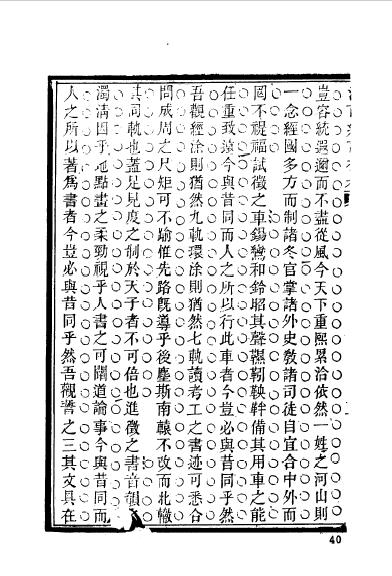 豈容統遐邇而不盡從風今天下重熙累洽依然一姓之河山則
一念經國多方而制諸冬官掌諸外史敎諸司徒自宜合中外而
罔不禔福試徵之車鍚鸞和鈴昭其聲鞎靷鞅靽備其用車之能
任重致遠今與昔同而人之所以行此車者今豈必與昔同乎然
吾觀經涂則猶然九軌環涂則猶然七軌讀考工之書迹可悉合
問成周之尺矩可不踰惟先路旣導乎後塵斯南轅不改而北轍
其同軌也蓋足見度之制於天子者不可倍也進徵之書音韻
濁淸因乎地點畫之柔勁視乎人書之可闡道論事今與昔同而
人之所以著爲書者今豈必與昔同乎然吾觀書之三其文具在
40